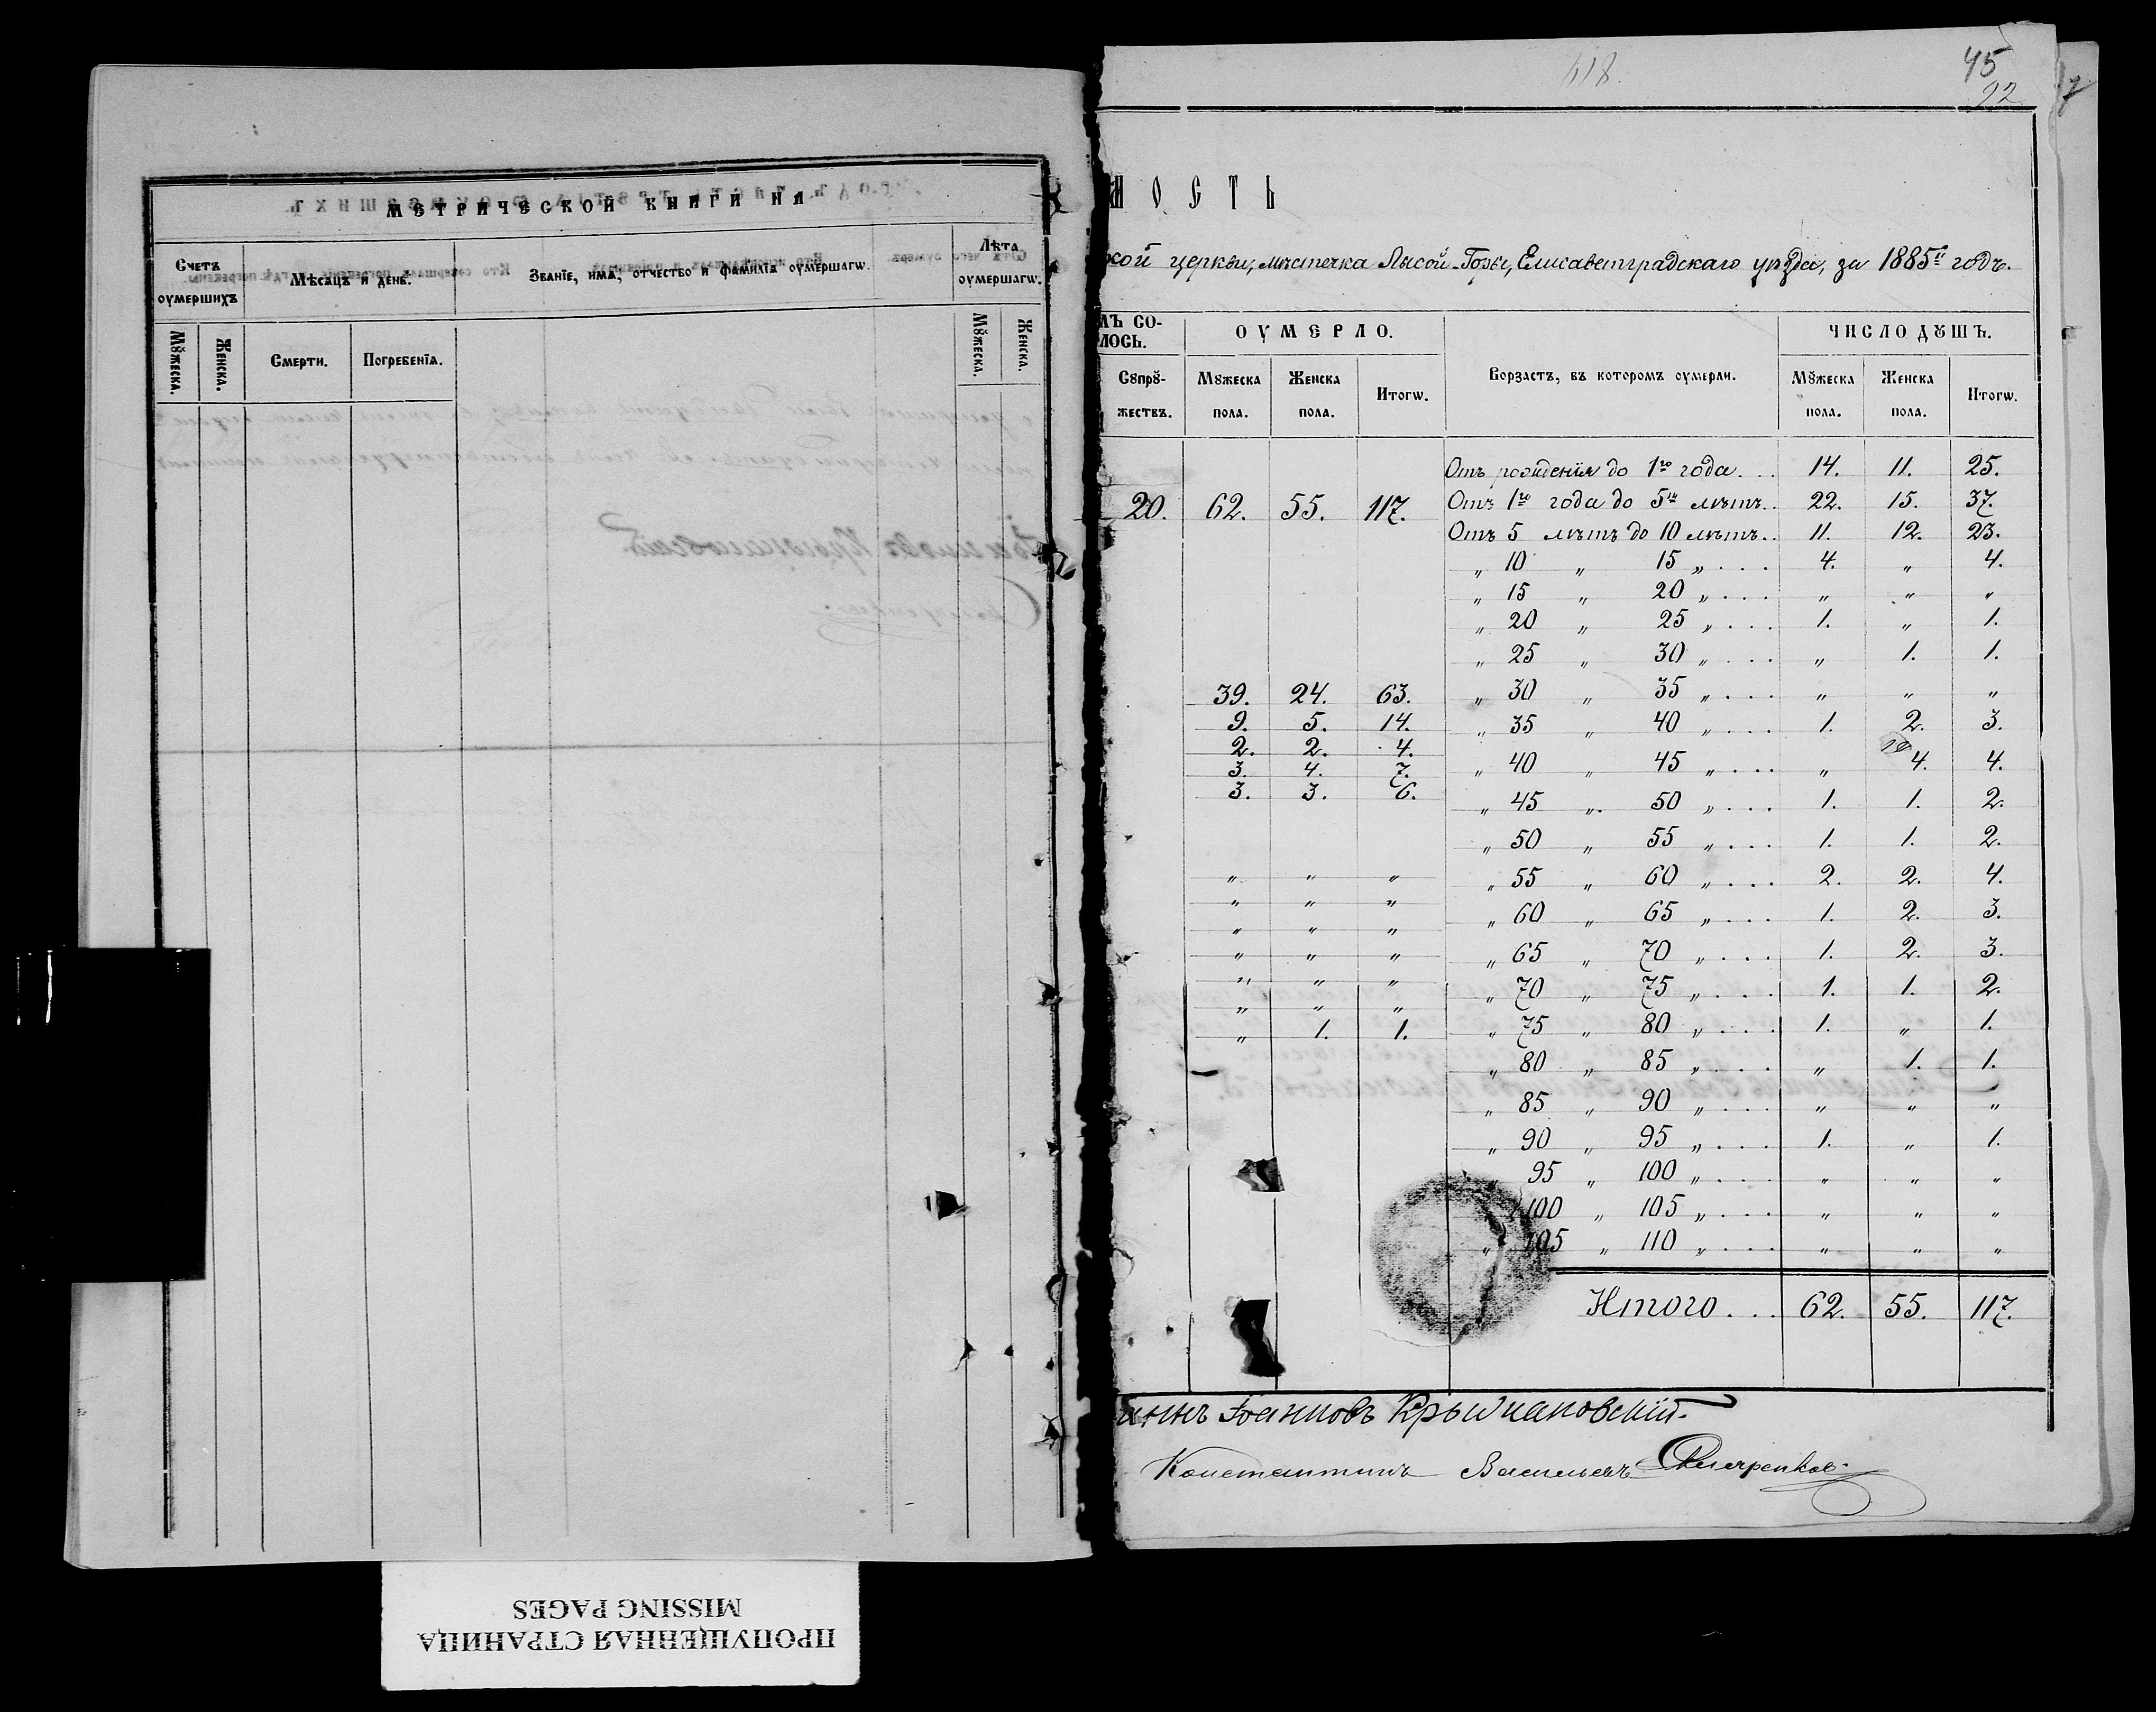 МЕТРИЧЕСКОЙ КНИГИ НА
Счетъ оумершихъ
Мѣсяцъ и день.
Званїе, имя, отчество и фамилїя оумершагѡ.
Лѣта оумершагѡ.
Мꙋжеска.
Женска.
Смерти.
Погребенїя.
Мꙋжеска.
Женска.
ПРОПУЩЕННАЯ СТРАНИЦА
MISSING PAGES
618.
45
22
МОСТЬ
кой церкви, мѣстечка Лысой-Горы, Елисаветградскаго уѣзда, за 1885й годъ.
МЪ СО-
ЛОСЬ.
ОУМЕРЛО.
Ворзастъ, въ которомъ оумерли.
ЧИСЛО ДꙊШЪ.
Сꙋпрꙋ-
жествъ.
Мꙋжеска пола.
Женска пола.
Итогѡ.
Мꙋжеска пола.
Женска пола.
Итогѡ.
Отъ рожденія до 1го года... 14. 11. 25.
20. 62. 55. 117. Отъ 1го года до 5ти лѣтъ.. 22. 15. 37.
Отъ 5 лѣтъ до 10 лѣтъ.. 11. 12. 23.
„ 10 „ 15 „ ... 4. „ 4.
„ 15 „ 20 „ ... „ „ „
„ 20 „ 25 „ ... 1. „ 1.
„ 25 „ 30 „ ... „ 1. 1.
39. 24. 63. „ 30 „ 35 „ ... „ „ „
9. 5. 14. „ 35 „ 40 „ ... 1. 2. 3.
2. 2. 4.
3. 4. 7. „ 40 „ 45 „ ... „ 4. 4.
3. 3. 6. „ 45 „ 50 „ ... 1. 1. 2.
„ 50 „ 55 „ ... 1. 1. 2.
„ „ „ „ 55 „ 60 „ ... 2. 2. 4.
„ „ „
„ „ „ „ 60 „ 65 „ ... 1. 2. 3.
„ „ „ „ 65 „ 70 „ ... 1. 2. 3.
„ „ „ „ 70 „ 75 „ ... 1. 1. 2.
„ „ „
„ 1. 1. „ 75 „ 80 „ ... 1. „ 1.
„ 80 „ 85 „ ... „ 1. 1.
„ 85 „ 90 „ ... „ „ „
„ 90 „ 95 „ ... 1. „ 1.
„ 95 „ 100 „ ... „ „ „
100 „ 105 „ ... „ „ „
„ 105 „ 110 „ ... „ „ „
Итого... 62. 55. 117.
аннъ Іоанновъ Крыжановскій.
Константинъ Васильевъ